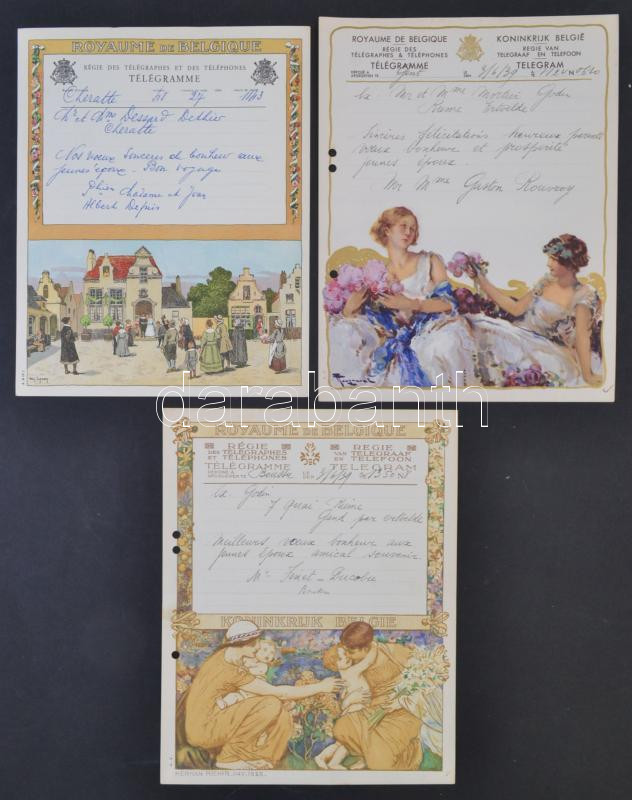 ROYAUME DE BELGIQUE
RÉGIE DES TÉLÉGRAPHES ET DES TÉLÉPHONES
TÉLÉGRAMME
Cheratte 27
Mr et Mme Dessard Dethier
Cheratte
Nos voeux sincères de bonheur aux
jeunes époux. Bon voyage
et Jean
Albert
ROYAUME DE BELGIQUE
RÉGIE DES
TÉLÉGRAPHES & TÉLÉPHONES
TÉLÉGRAMME
KONINKRIJK BELGIË
REGIE VAN
TELEGRAAF EN TELEFOON
TELEGRAM
Gent 3/6/39
Mr et Mme Godin
Ertvelde
Sincères félicitations heureux parents
vœux bonheur et prospérité
jeunes époux
Mr Mme Gaston Rouvroy
darabanth
ROYAUME DE BELGIQUE
RÉGIE
DES TÉLÉGRAPHES
ET TÉLÉPHONES
TÉLÉGRAMME
REGIE
VAN TELEGRAAF
EN TELEFOON
TELEGRAM
3/6/39
Godin
7 quai
Gand par Ertvelde
meilleurs vœux bonheur aux
jeunes époux amical souvenir
KONINKRIJK BELGIE